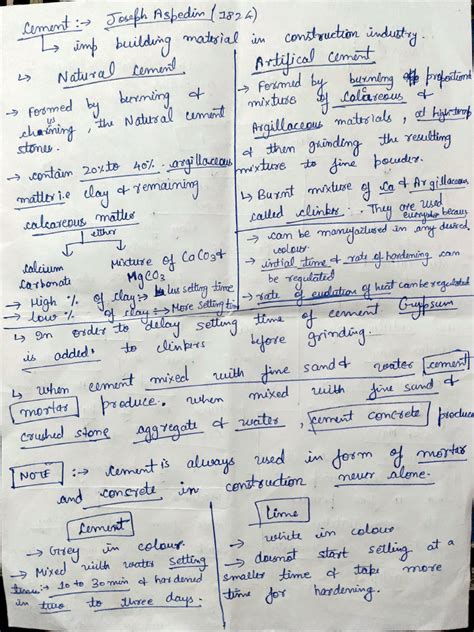 Cement :→ Joseph Aspedin (1824)
↳ imp building material in construction industry.
↳ Natural Cement
→ Formed by burning &
the Natural cement
stones.
→ contain 20% to 40% argillaceous
matter i.e clay & remaining
calcareous matter
either
calcium
carbonate
Mixture of CaCO3 &
MgCO3
→ High % of clay :→ less setting time
→ low % of clay :→ More setting time
Artifical Cement
→ Formed by burning proportion
mixture of calcareous &
Argillaceous materials, at high temp
& then grinding the resulting
mixture to fine powder.
↳ Burnt mixture of Ca & Argillaceous
called clinker. They are used
→ can be manufactured in any desired
colour.
→ intial time & rate of hardening can
be regulated
→ rate of evolution of heat can be regulated
↳ In order to delay setting time of cement Gypsum
is added to clinkers before grinding.
↳ when cement mixed with fine sand & water cement
mortar produce. when mixed with fine sand &
crushed stone aggregate & water, cement concrete produce
NOTE :→ cement is always used in form of mortar
and concrete in construction never alone.
Cement
→ Grey in colour.
→ Mixed with water setting
time :→ 10 to 30 min & hardened
in two to three days.
Lime
→ white in colour
→ doesnot start setting at a
smaller time & take more
time for hardening.